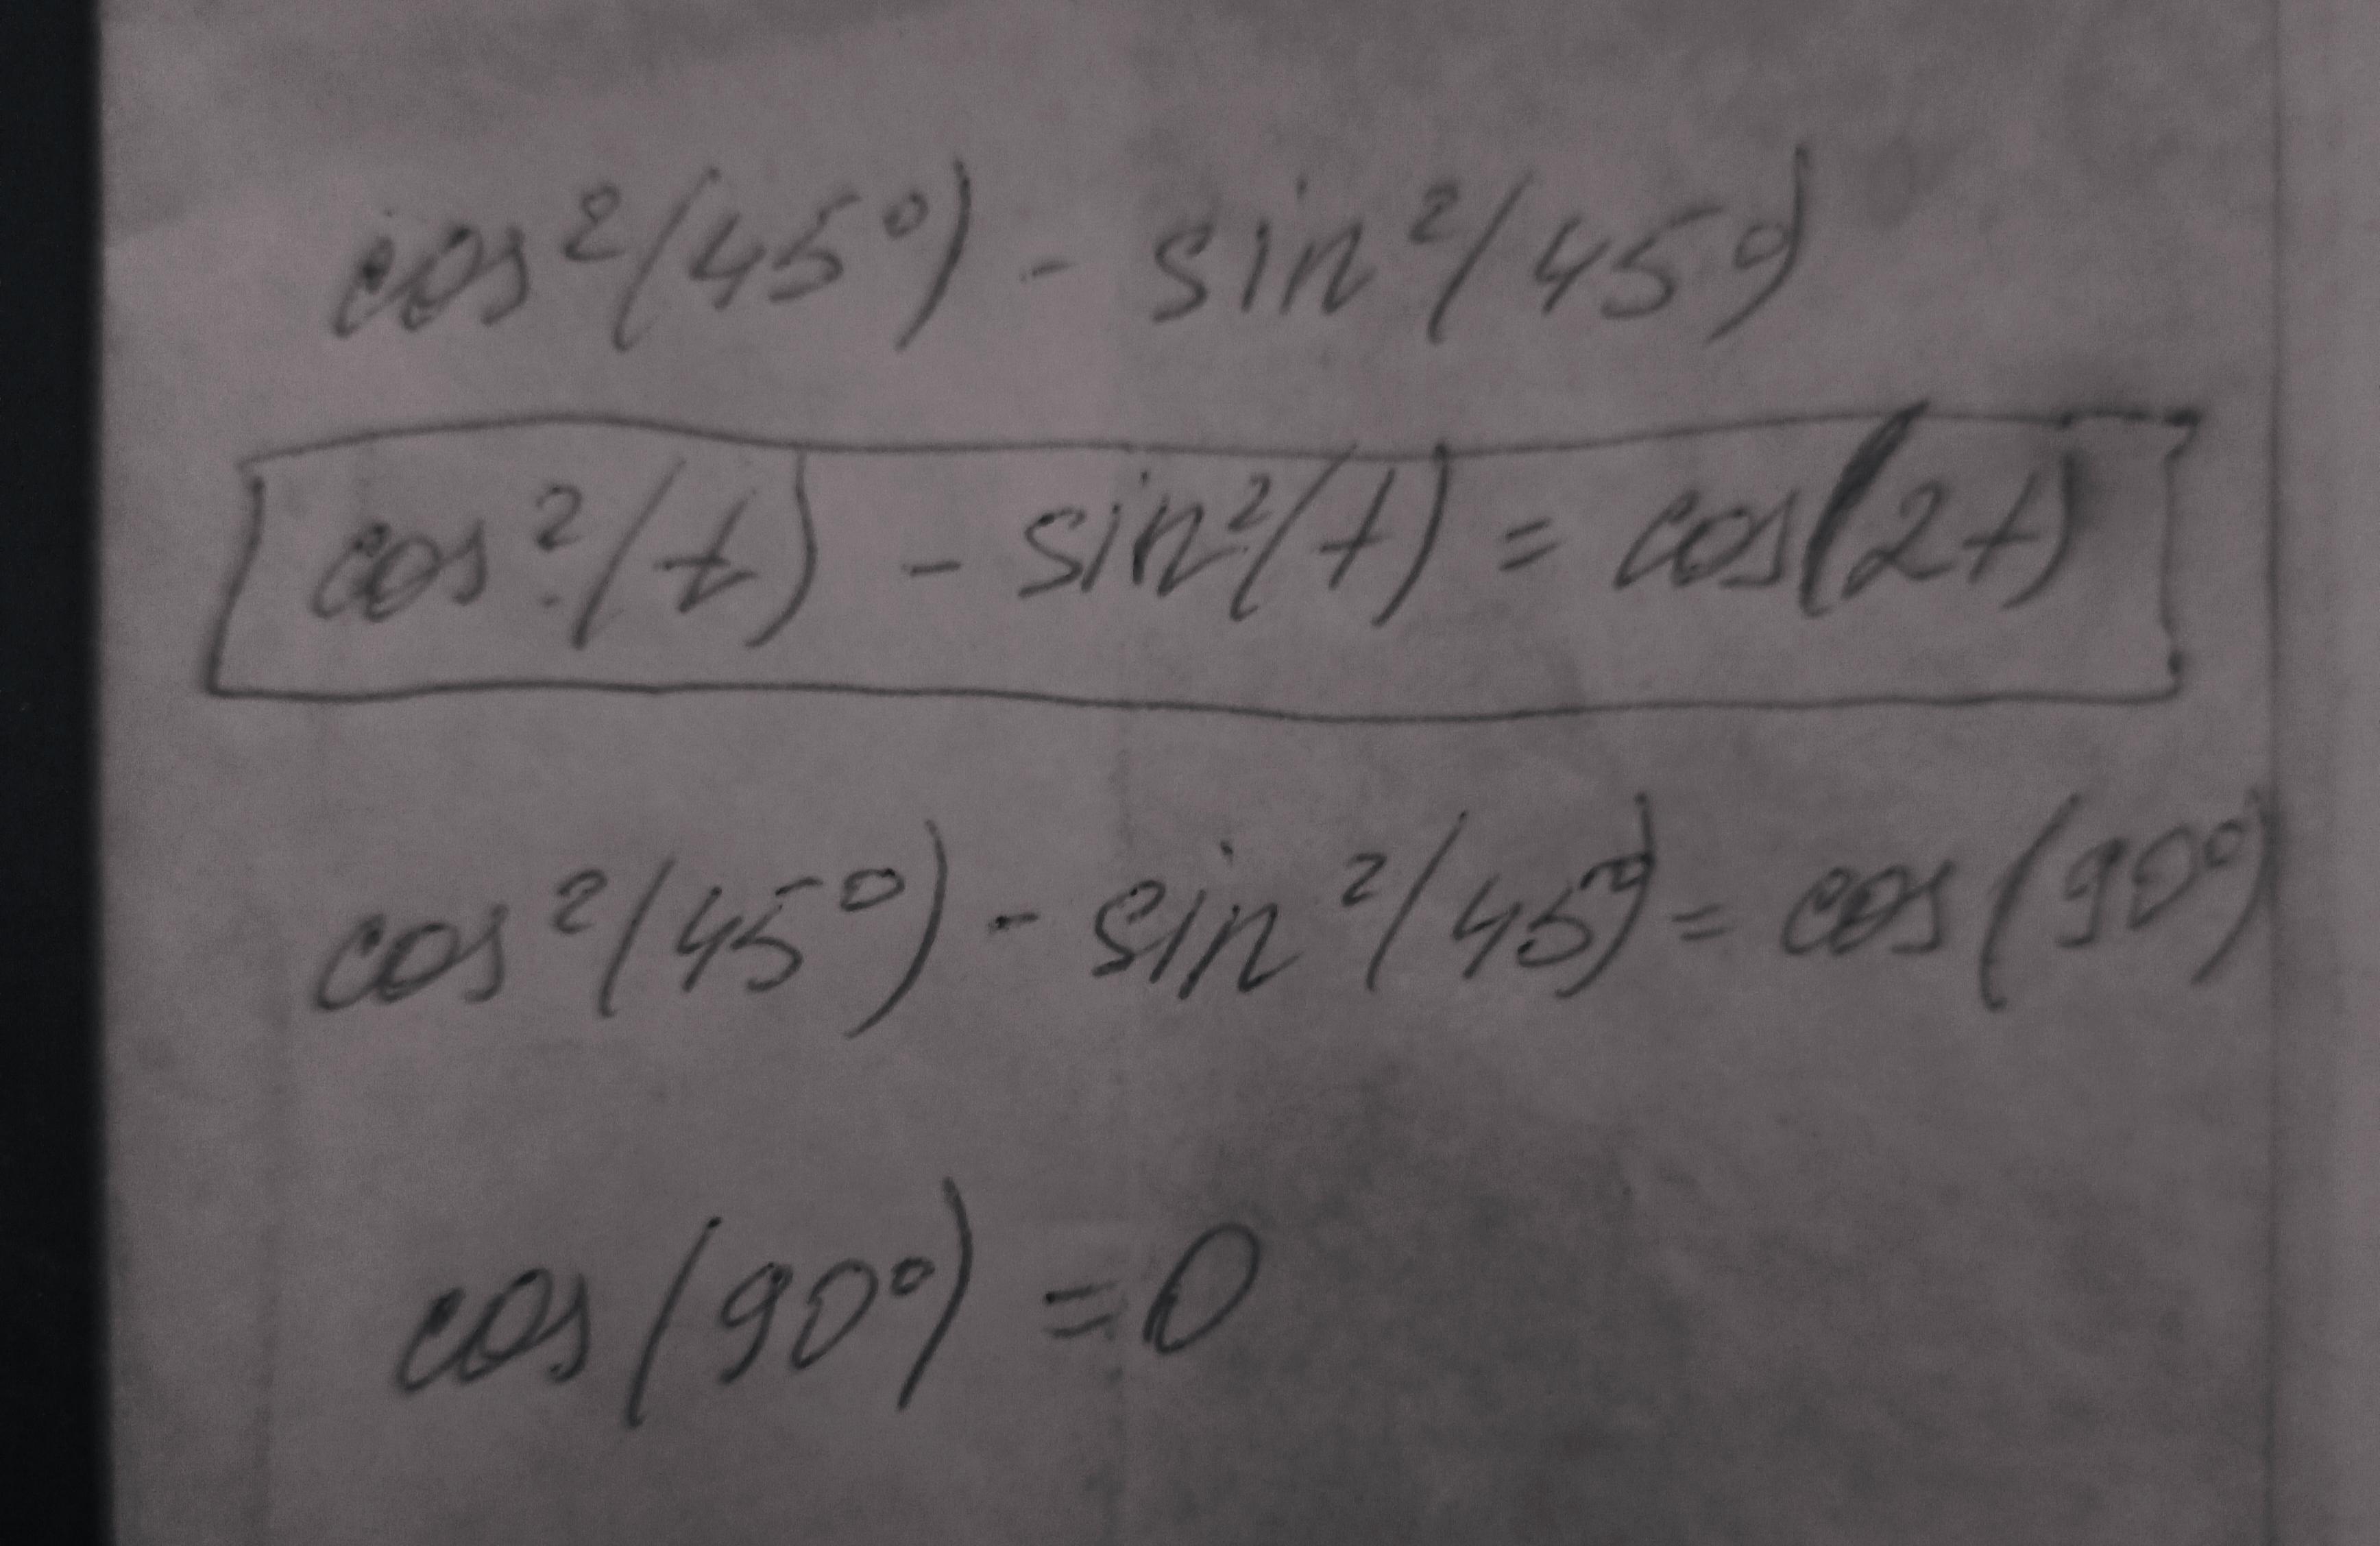 cos²(45°) - sin²(45°)
cos²(t) - sin²(t) = cos(2t)
cos²(45°) - sin²(45°) = cos(90°)
cos(90°) = 0